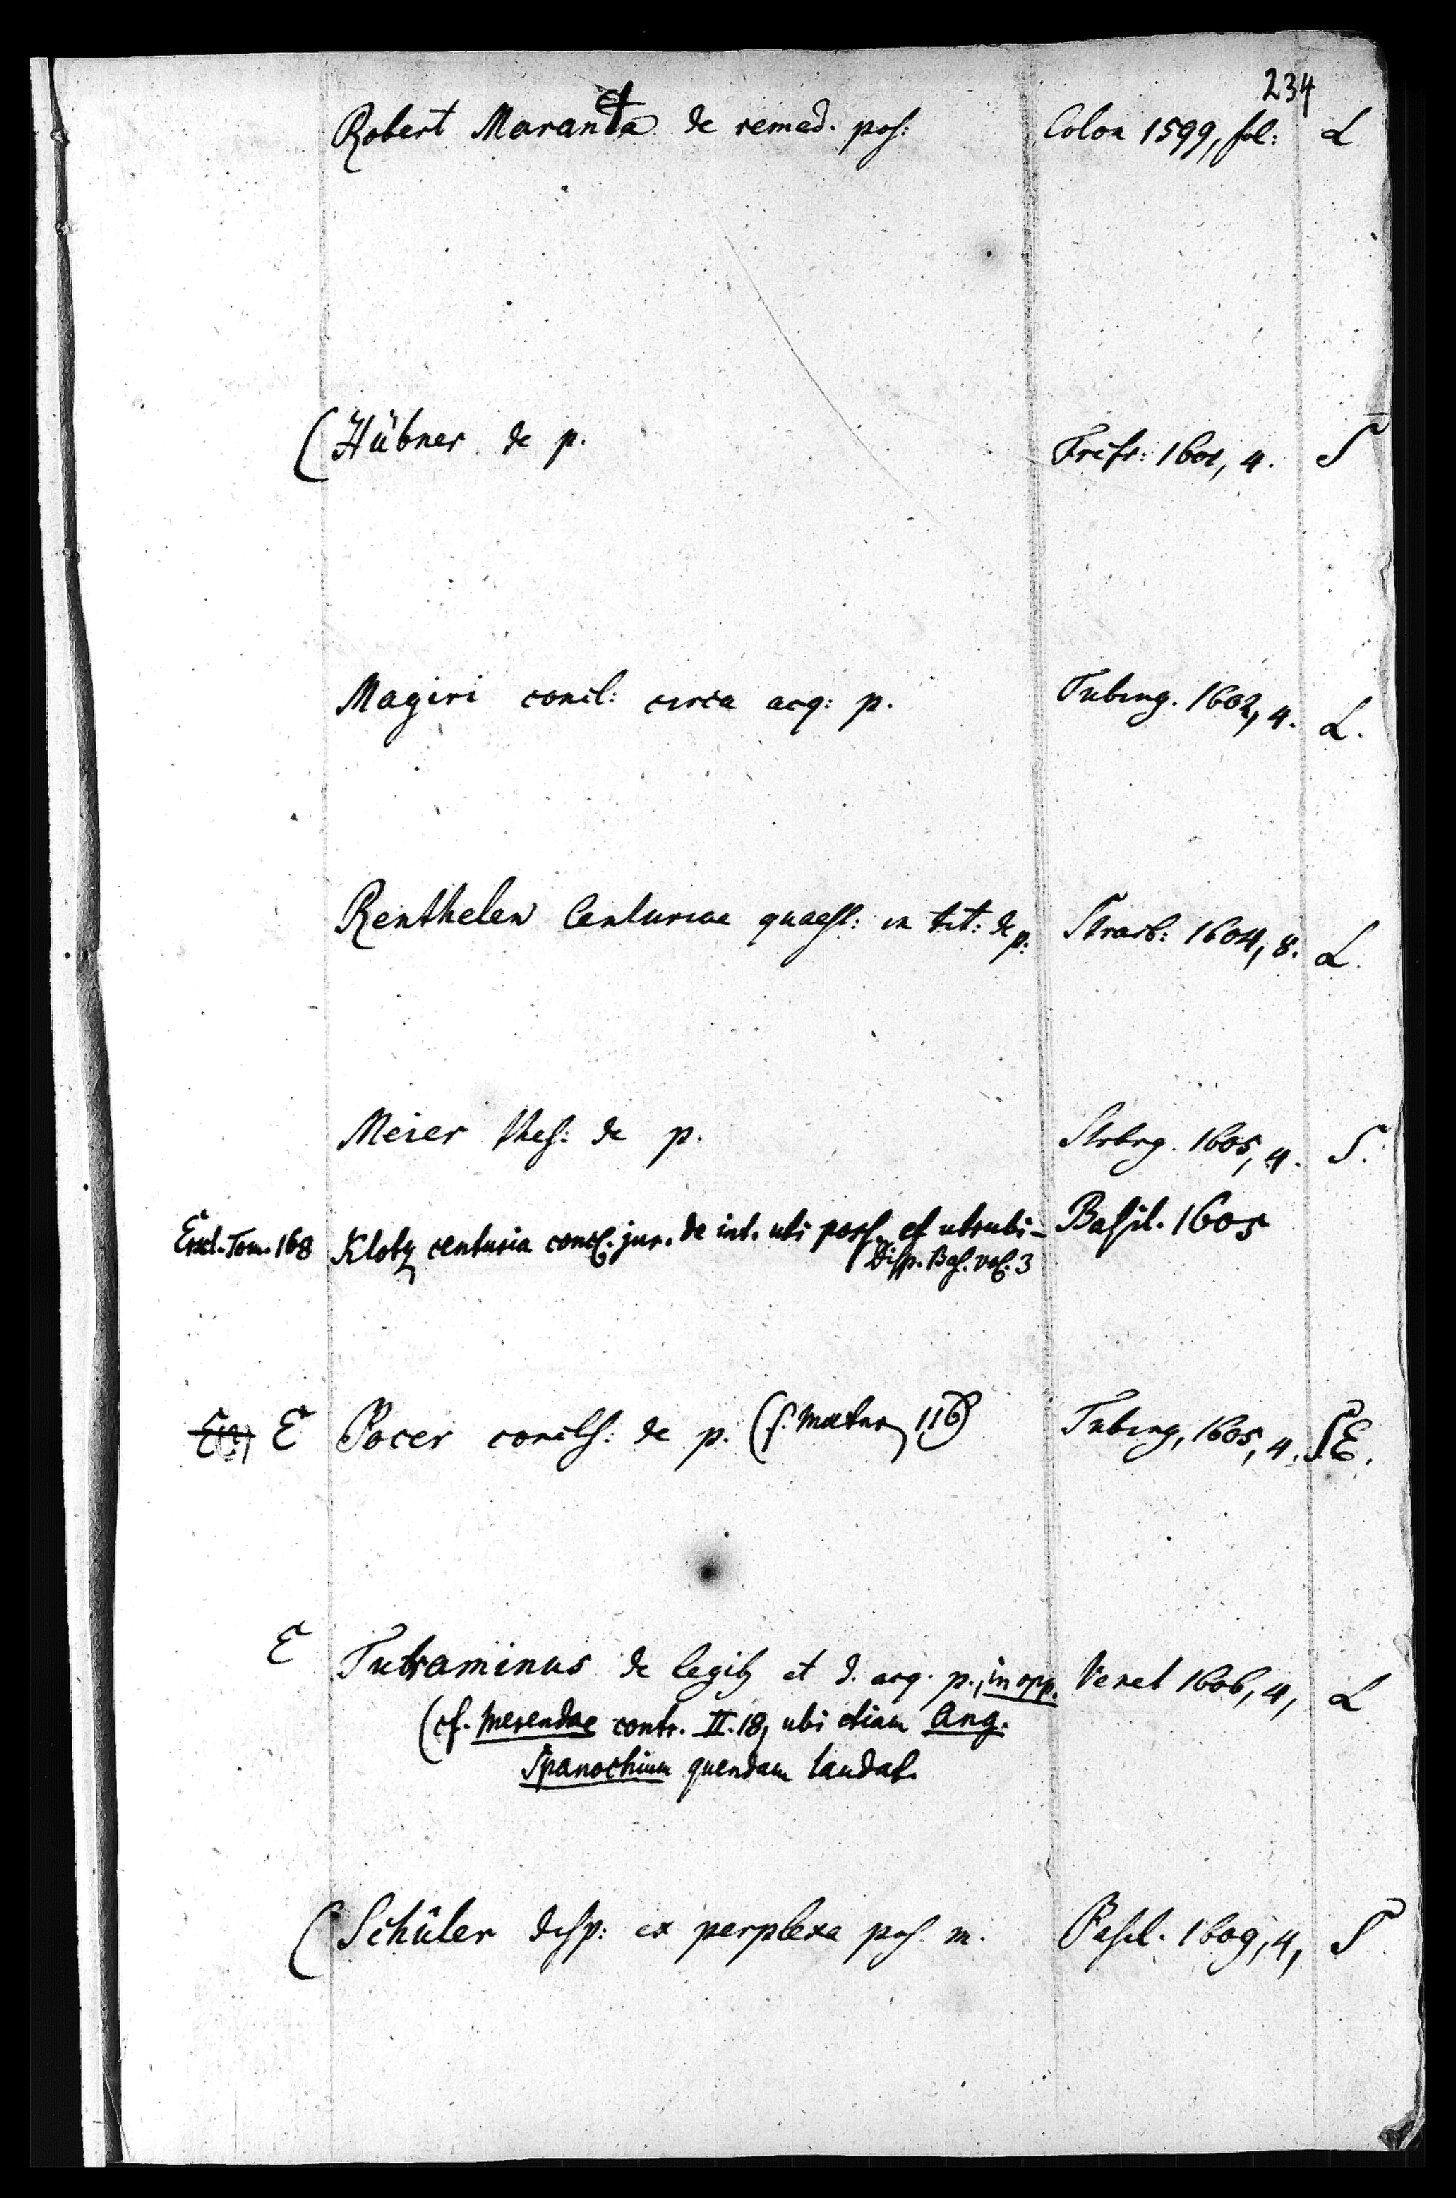 234
Robert Maranta de remed. poss: Colon 1599, fol: L
(Hübner de p. Frcfr: 1601, 4. S
Magiri concl: circa acq: p. Tubing. 1602, 4. L.
Renthelen Centuriae quaest: in tit: de p: Strasb: 1604, 8. L.
Meier thes: de p. Strbrg. 1605, 4. S.
Erxl. Tom. 168 Klotz centuria concl. jur. de int. uti poss. et utrubi- Basil. 1605
Disp. Bas. vol. 3
E Pocer concls: de p. (s. 116) Tubing, 1605, 4. S E.
E Tutraminus de legib et d. acq. p., in opp. Venet 1606, 4, L
(cf. Merendae contr. II. 18, ubi etiam Ang.
Spanochium quendam laudat.
(Schüler disp: ex perplexa poss m. Basil. 1609, 4, S